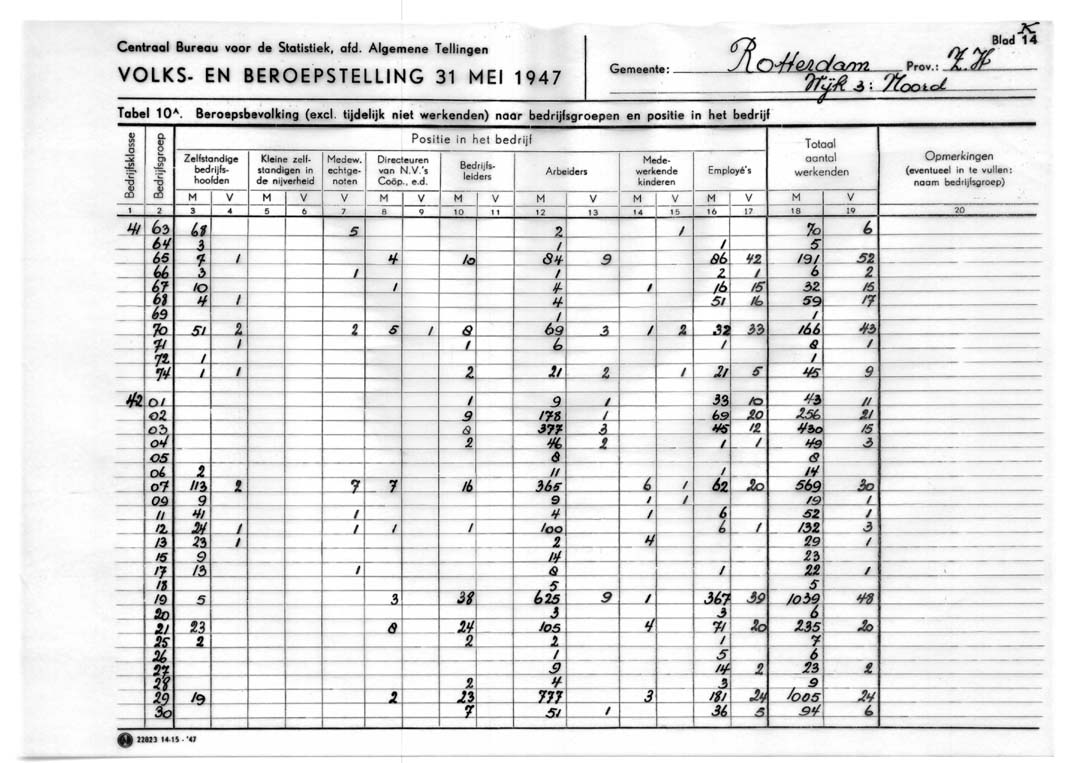 Centraal Bureau voor de Statistiek, afd. Algemene Tellingen
VOLKS- EN BEROEPSTELLING 31 MEI 1947
Gemeente: Rotterdam Prov.: Z.H
Wijk 3: Noord
K
Blad 14
Tabel 10A. Beroepsbevolking (excl. tijdelijk niet werkenden) naar bedrijfsgroepen en positie in het bedrijf
Bedrijfsklasse
Bedrijfsgroep
Positie in het bedrijf
Zelfstandige bedrijfs- hoofden
Kleine zelf- standigen in de nijverheid
Medew. echtge- noten
Directeuren van N.V.'s Coöp., e.d.
Bedrijfs- leiders
Arbeiders
Mede- werkende kinderen
Employé's
Totaal aantal werkenden
Opmerkingen (eventueel in te vullen: naam bedrijfsgroep)
M V M V V M V M V M V M V M V M V
1 2 3 4 5 6 7 8 9 10 11 12 13 14 15 16 17 18 19 20
41 63 68 5 2 1 70 6
64 3 1 1 5
65 7 1 4 10 84 9 86 42 191 52
66 3 1 1 2 1 6 2
67 10 1 4 1 16 15 32 15
68 4 1 4 51 16 59 17
69 1 1
70 51 2 2 5 1 8 69 3 1 2 32 33 166 43
71 1 1 6 1 8 1
72 1 1
74 1 1 2 21 2 1 21 5 45 9
42 01 1 9 1 33 10 43 11
02 9 178 1 69 20 256 21
03 8 377 3 45 12 430 15
04 2 46 2 1 1 49 3
05 8 8
06 2 11 1 14
07 113 2 7 7 16 365 6 1 62 20 569 30
09 9 9 1 1 19 1
11 41 1 4 1 6 52 1
12 24 1 1 1 1 100 6 1 132 3
13 23 1 2 4 29 1
15 9 14 23
17 13 1 8 1 22 1
18 5 5
19 5 3 38 625 9 1 367 39 1039 48
20 3 3 6
21 23 8 24 105 4 71 20 235 20
25 2 2 2 1 7
26 1 5 6
27 9 14 2 23 2
28 2 4 3 9
29 19 2 23 777 3 181 24 1005 24
30 7 51 1 36 5 94 6
22823 14-15 - '47